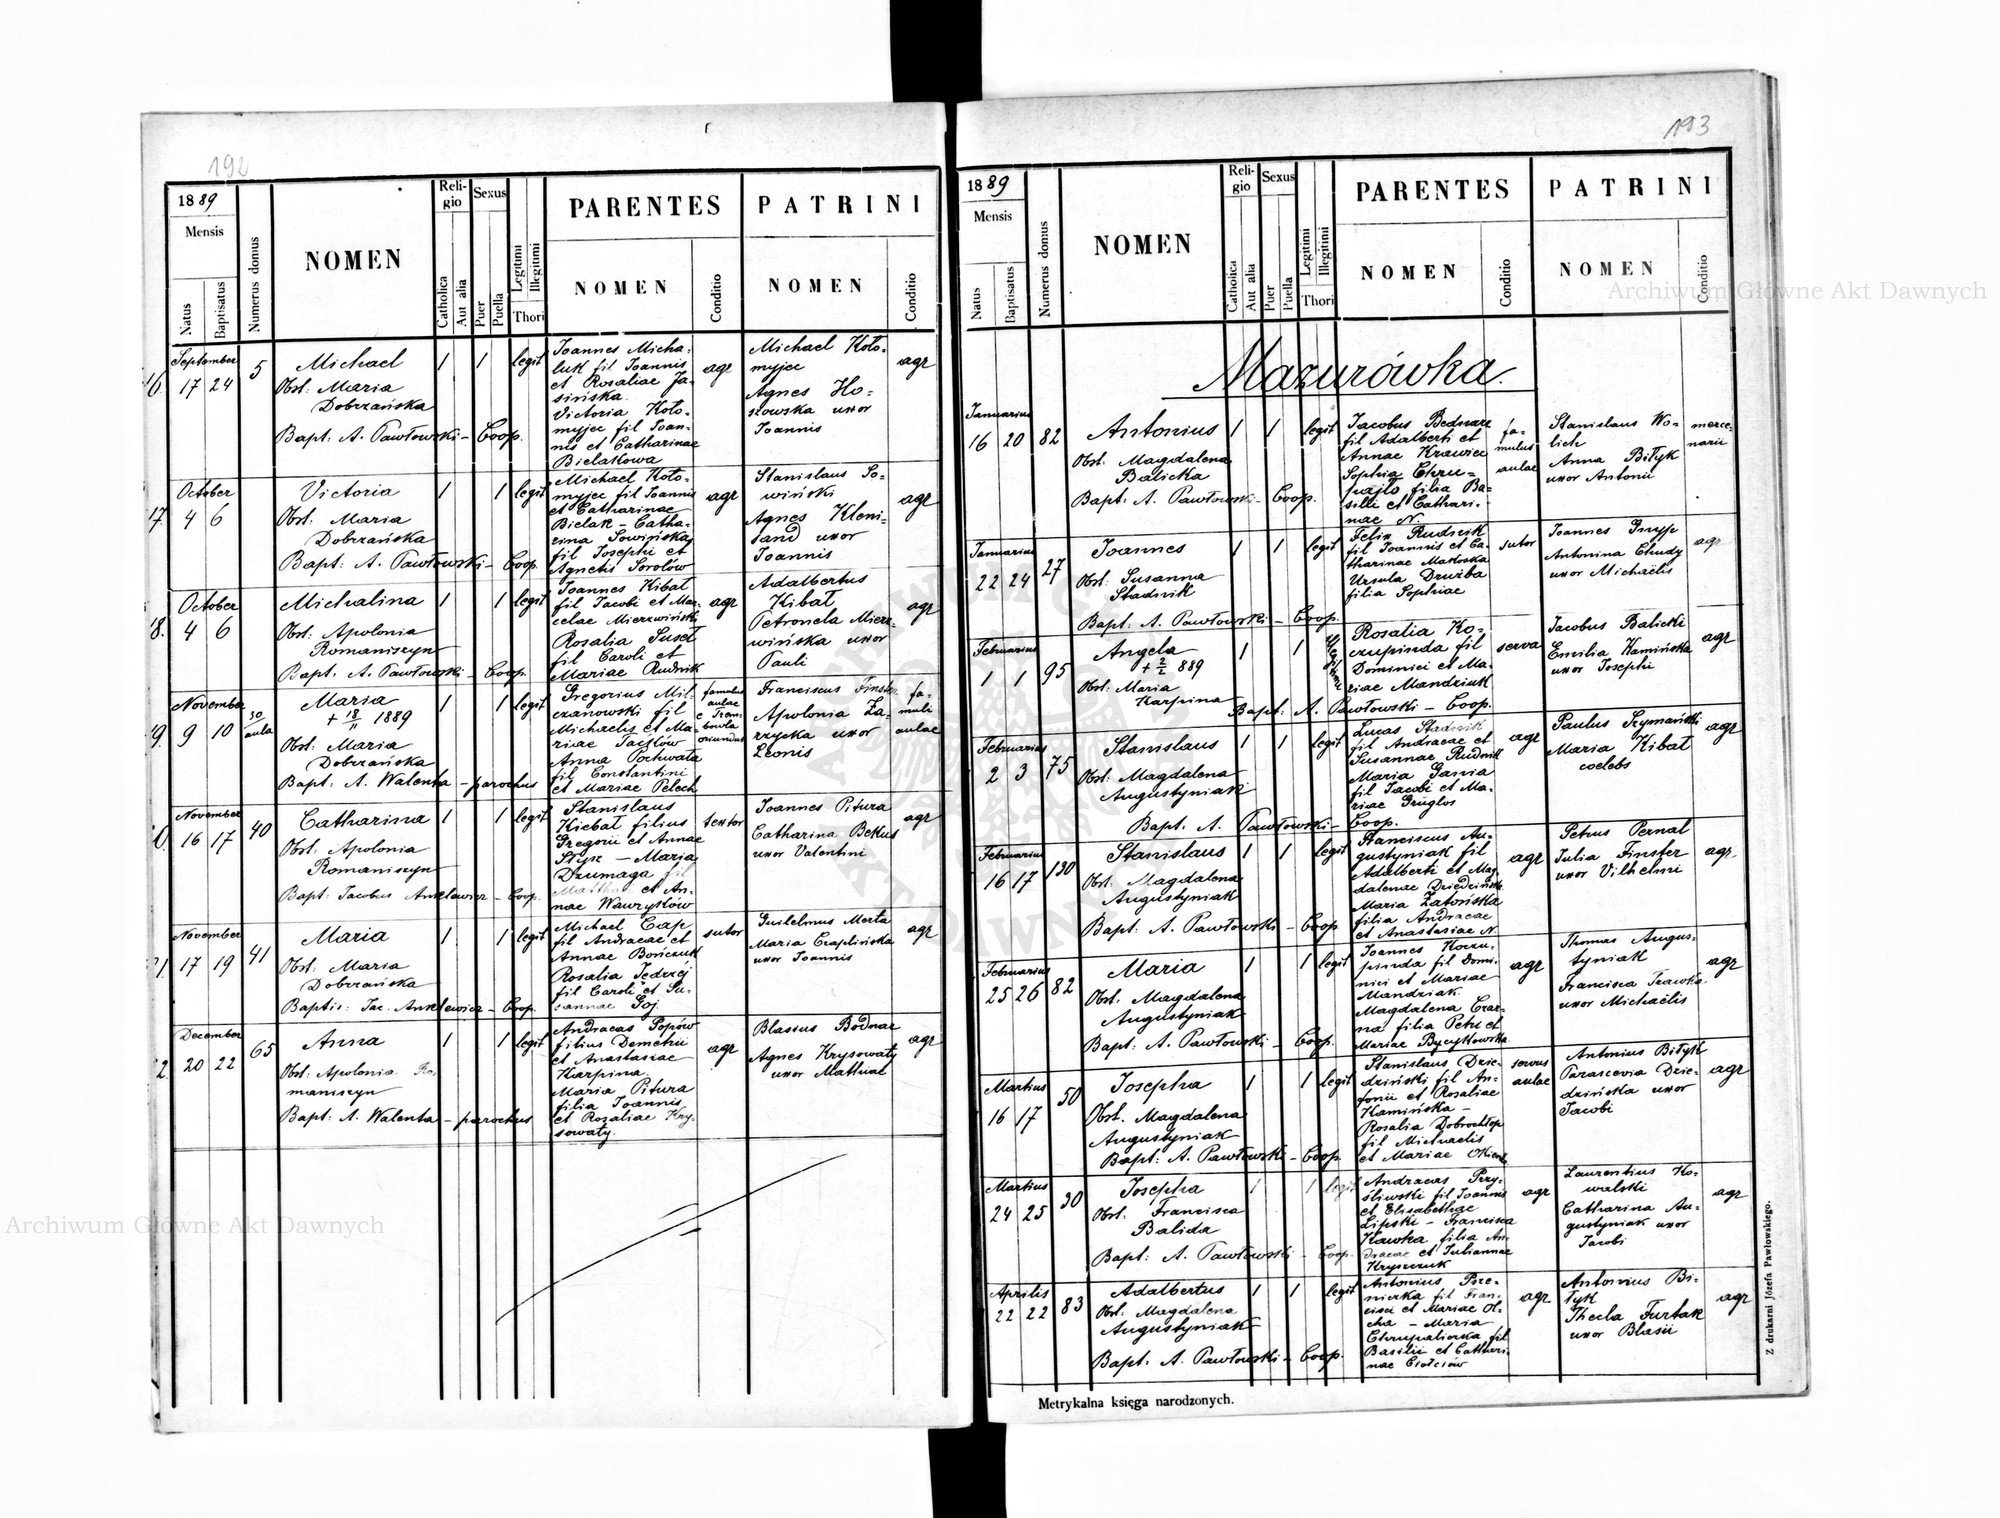 192
1889
Mensis
Natus
Baptisatus
Numerus domus
NOMEN
Religio
Catholica
Aut alia
Sexus
Puer
Puella
Legitimi
Illegitimi
Thori
PARENTES
NOMEN
Conditio
PATRINI
NOMEN
Conditio
16.
September
17 24
5
Michael
Obst: Maria
Dobrzańska
Bapt: A. Pawłowski – Coop.
1
1
legit
Joannes Micha-
luk fil Joannis
et Rosaliae Ja-
sińska.
Victoria Koło-
myjec fil Joan-
nis et Catharinae
Bielakowa
agr
Michael Koło-
myjec
Agnes Ho-
szowska uxor
Joannis
agr
17.
October
4 6
Victoria
Obst: Maria
Dobrzańska
Bapt: A. Pawłowski – Coop.
1
1
legit
Michael Koło-
myjec fil Joannis
et Catharinae
Bielak – Catha-
rina Sowińska
fil Josephi et
Agnetis Sorolów
agr
Stanislaus So-
wiński
Agnes Kleni-
land uxor
Joannis
agr
18.
October
4 6
Michalina
Obst: Apolonia
Romaniszyn
Bapt: A. Pawłowski – Coop.
1
1
legit
Joannes Kibał
fil Jacobi et Mar-
celae Mierzwiński
Rosalia Suseł
fil Caroli et
Mariae Rudnik
agr
Adalbertus
Kibał
Petronela Mierz-
wińska uxor
Pauli
agr
19.
November
9 10
30
aula
Maria
+ 18/11 1889
Obst: Maria
Dobrzańska
Bapt: A. Walenta – parochus
1
1
legit
Gregorius Mil-
czanowski fil
Michaelis et Ma-
riae Jacków
Anna Pochwała
fil Constantini
et Mariae Pelech
famulus
aulae
e Trem-
bowla
oriundus
Franciscus Finster
Apolonia Za-
rzycka uxor
Leonis
fa-
muli
aulae
20.
November
16 17
40
Catharina
Obst: Apolonia
Romaniszyn
Bapt: Jacobus Anklewicz – Coop.
1
1
legit
Stanislaus
Kiebał filius
Gregorii et Annae
Styk – Maria
Dzumaga fil
Matthai et An-
nae Wawryków
textor
Joannes Pitura
Catharina Bekus
uxor Valentini
agr
21.
November
17 19
41
Maria
Obst: Maria
Dobrzańska
Baptis: Jac. Anklewicz – Coop.
1
1
legit
Michael Cap
fil Andraeae et
Annae Bończuk
Rosalia Jędrzej
fil Caroli et Su-
sannae Goj
sutor
Guilelmus Merta
Maria Czaplińska
uxor Joannis
agr
22.
December
20 22
65
Anna
Obst: Apolonia Ro-
maniszyn
Bapt: A. Walenta – parochus
1
1
legit
Andraeas Popów
filius Demetrii
et Anastasiae
Karpina.
Maria Pitura
filia Joannis
et Rosaliae Kry-
sowaty.
agr
Blasius Bodnar
Agnes Krysowaty
uxor Mathiae
agr
193
1889
Mensis
Natus
Baptisatus
Numerus domus
NOMEN
Religio
Catholica
Aut alia
Sexus
Puer
Puella
Legitimi
Illegitimi
Thori
PARENTES
NOMEN
Conditio
PATRINI
NOMEN
Conditio
Mazurówka.
Januarius
16 20
82
Antonius
Obst: Magdalena
Balicka
Bapt: A. Pawłowski – Coop.
1
1
legit
Jacobus Bednarz
fil Adalberti et
Annae Krawiec
Sophia Chru-
pajło filia Ba-
silii et Cathari-
nae N.
fa-
mulus
aulae
Stanislaus Wo-
lich
Anna Biłyk
uxor Antonii
merce-
narii
Januarius
22 24
27
Joannes
Obst: Susanna
Stadnik
Bapt: A. Pawłowski – Coop.
1
1
legit
Felix Rudnik
fil Joannis et Ca-
tharinae Makoska
Ursula Drużba
filia Sophiae
sutor
Joannes Gnyp
Antonina Chudy
uxor Michaelis
agr
Februarius
1 1
95
Angela
+ 2/2 889
Obst: Maria
Karpina
Bapt: A. Pawłowski – Coop.
1
1
Rosalia Ko-
czupinda fil
Dominici et Ma-
riae Mandziuk
serva
Jacobus Balicki
Emilia Kamińska
uxor Josephi
agr
Februarius
2 3
75
Stanislaus
Obst: Magdalena
Augustyniak
Bapt. A. Pawłowski – Coop.
1
1
legit
Lucas Stadnik
fil Andraeae et
Susannae Rudnik
Maria Gania
fil Jacobi et Ma-
riae Gruglos
agr
Paulus Szymański
Maria Kibał
coelebs
agr
Februarius
16 17
130
Stanislaus
Obst: Magdalena
Augustyniak
Bapt: A. Pawłowski – Coop
1
1
legit
Franciscus Au-
gustyniak fil
Adalberti et Mag-
dalenae Dziedzińska
Maria Zatońska
filia Andraeae
et Anastasiae N.
agr
Petrus Pernal
Julia Finster
uxor Vilhelmi
agr
Februarius
25 26
82
Maria
Obst: Magdalena
Augustyniak
Bapt: A. Pawłowski – Coop.
1
1
legit
Joannes Koczu-
pinda fil Domi-
nici et Mariae
Mandziak.
Magdalena Czar-
na filia Petri et
Mariae Byczkowska
agr
Thomas Augus-
tyniak
Francisca Trawka
uxor Michaelis
agr
Martius
16 17
50
Josepha
Obst. Magdalena
Augustyniak
Bapt: A. Pawłowski – Coop.
1
1
legit
Stanislaus Dzie-
dziński fil An-
tonii et Rosaliae
Kamińska –
Rosalia Dobrochłop
fil Michaelis
et Mariae
servus
aulae
Antonius Biłyk
Parascevia Dzie-
dzińska uxor
Jacobi
agr
Martius
24 25
30
Josepha
Obst. Francisca
Balida
Bapt: A. Pawłowski – Coop.
1
1
legit
Andraeas Przy-
śliwski fil Joannis
et Elisabethae
Lipski – Francisca
Kawka filia An-
draeae et Juliannae
Kryszczuk
agr
Laurentius Ko-
walski
Catharina Au-
gustyniak uxor
Jacobi
agr
Aprilis
22 22
83
Adalbertus
Obst. Magdalena
Augustyniak
Bapt: A. Pawłowski – Coop.
1
1
legit
Antonius Psze-
niczka fil Fran-
cisci et Mariae Ol-
cha – Maria
Chrupalicka fil
Basilii et Cathari-
nae Ciołciów
agr
Antonius Bi-
łyk
Thecla Furtak
uxor Blasii
agr
Metrykalna księga narodzonych.
Z drukarni Józefa Pawłowskiego.
Archiwum Główne Akt Dawnych
Archiwum Główne Akt Dawnych